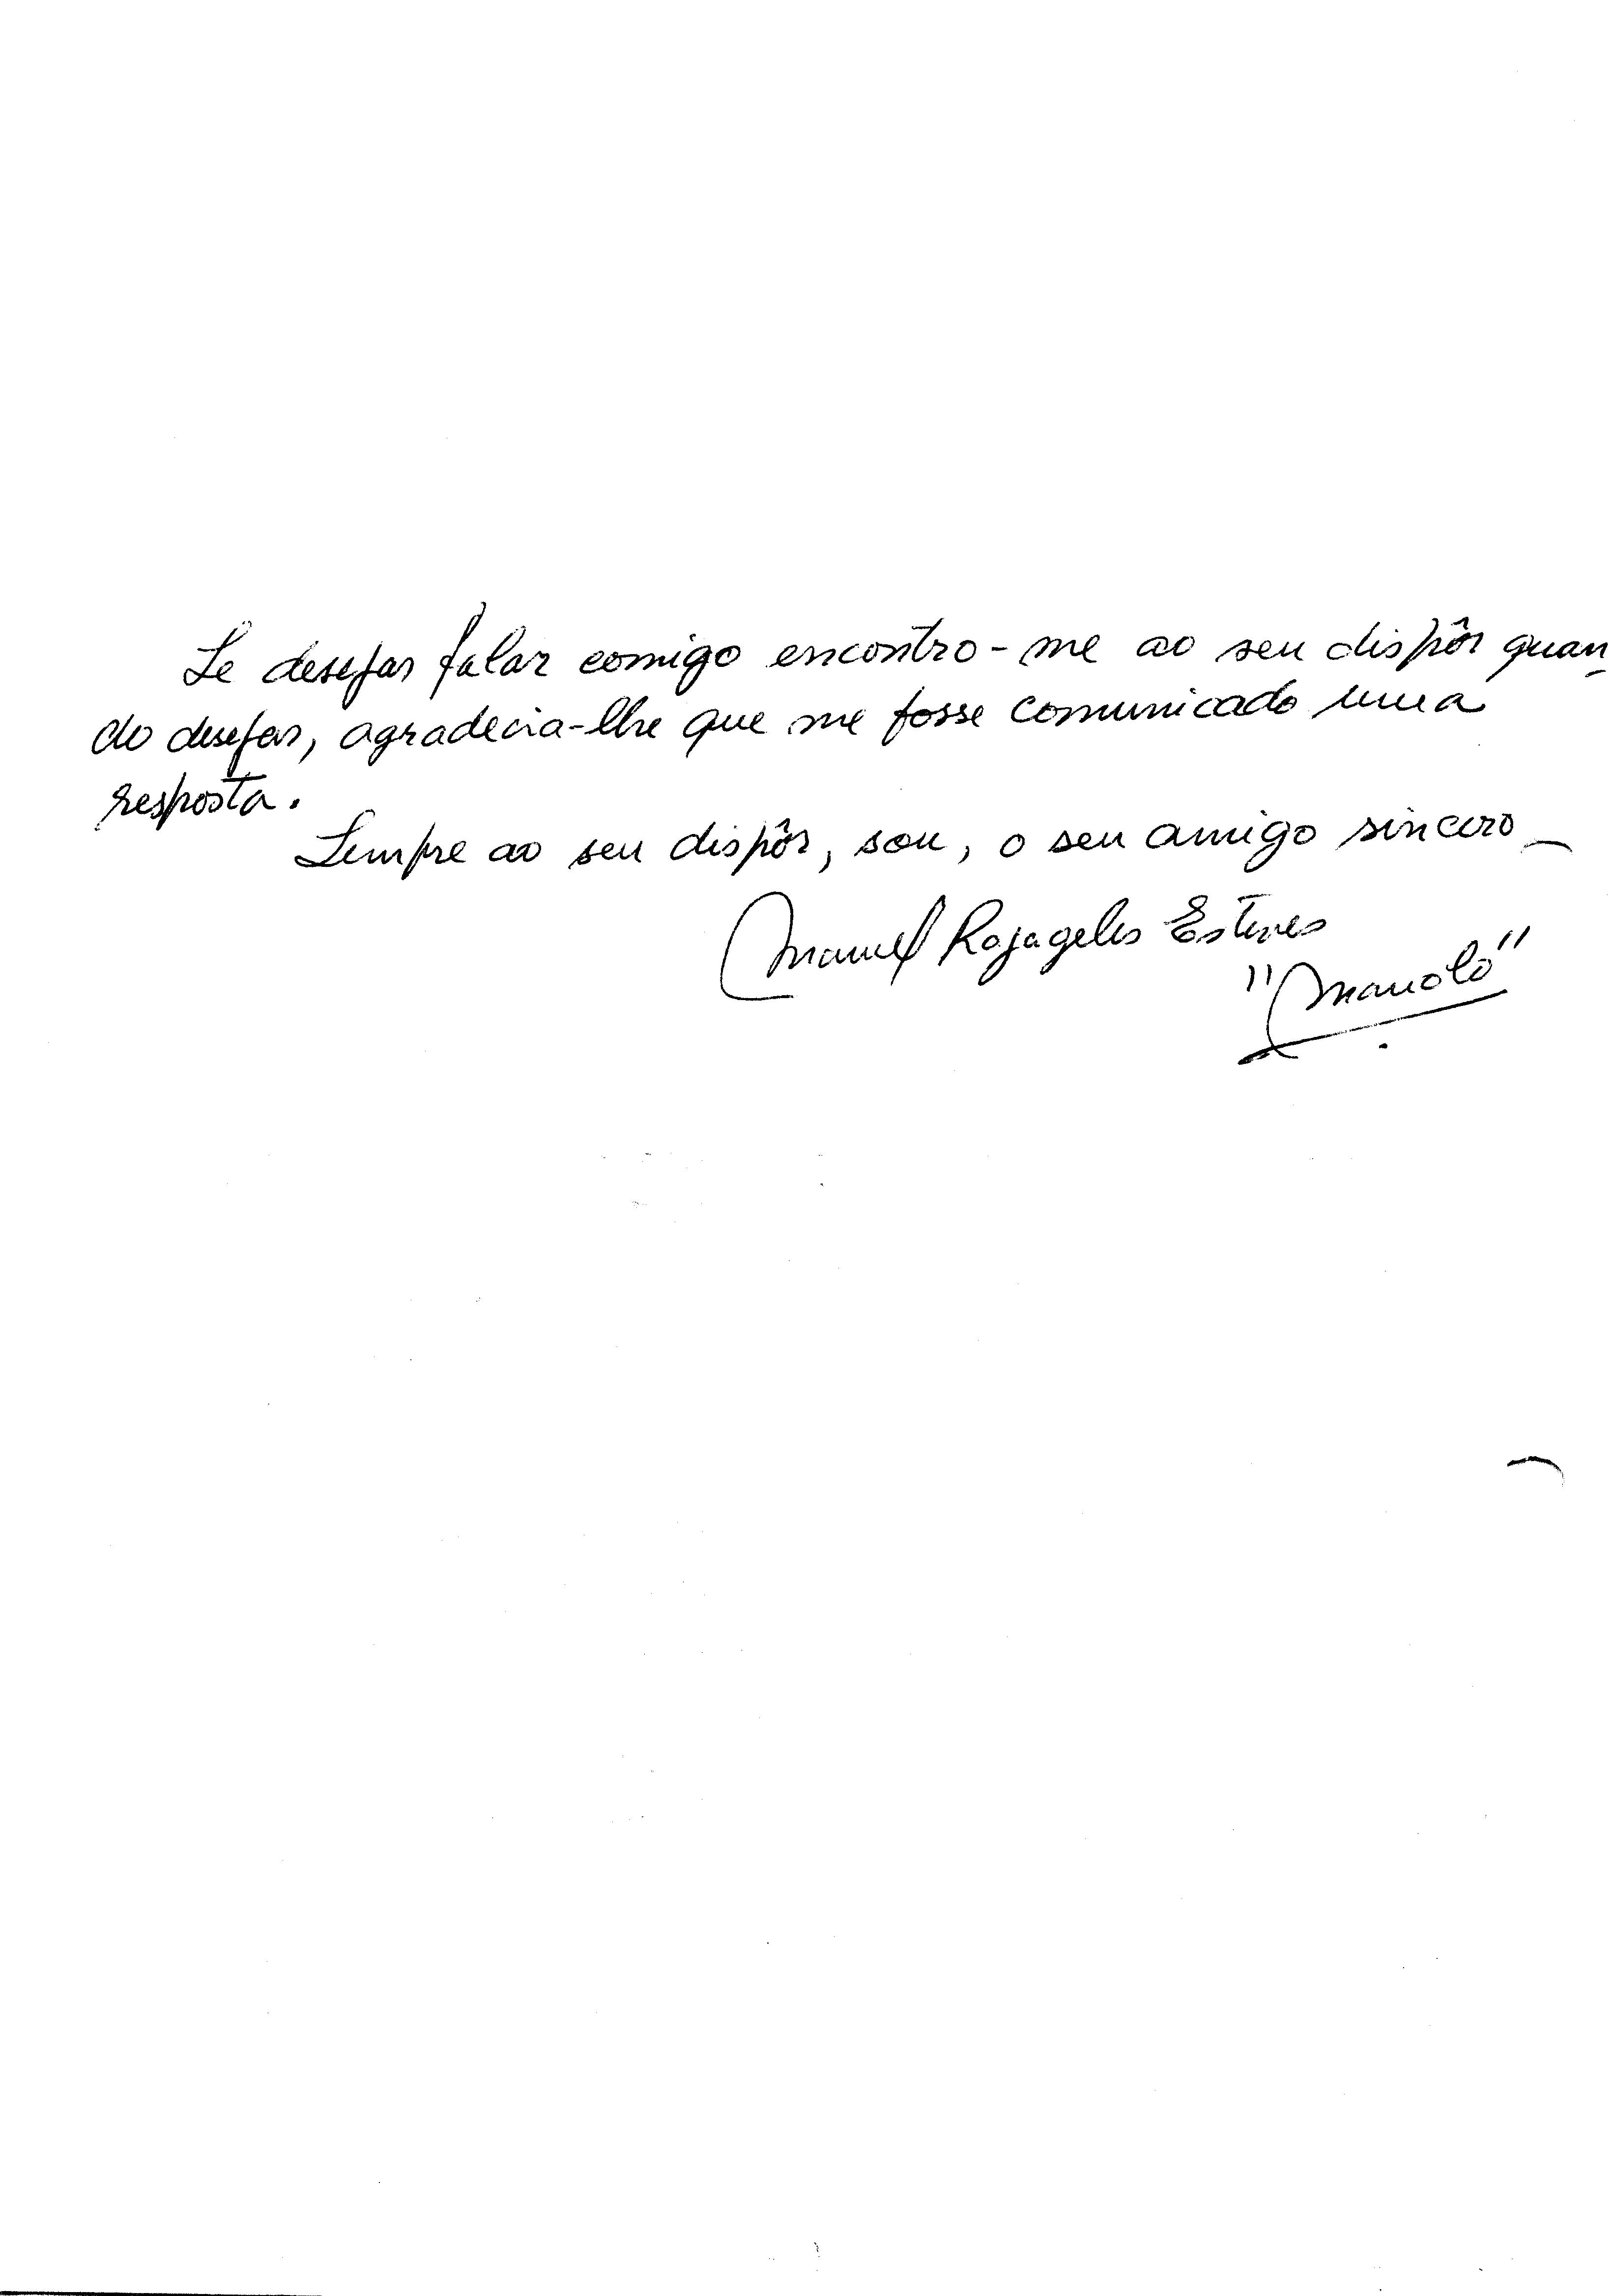 Se desejar falar comigo encontro-me ao seu dispôr quan
do desejar, agradecia-lhe que me fosse comunicado uma
resposta.
Sempre ao seu dispôr, sou, o seu amigo sincero
Manuel Esteves
"Manolo"